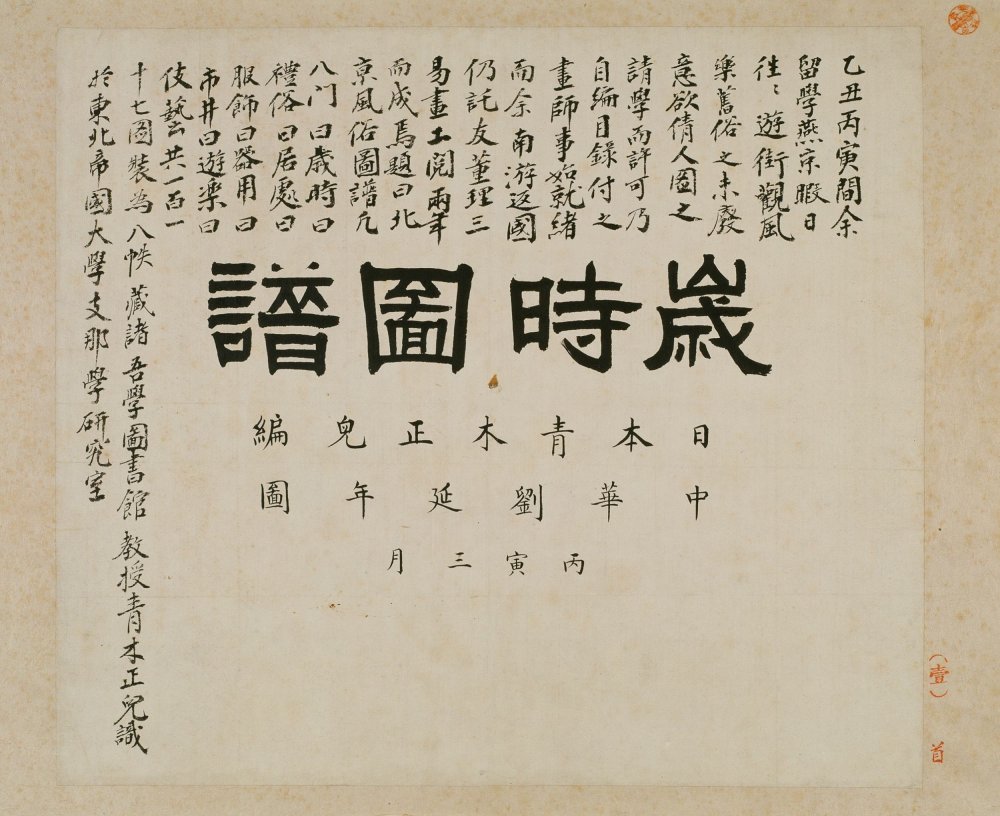 乙丑丙寅間余
留學燕京暇日
往〻遊街觀風
樂舊俗之未廢
意欲倩人圖之
請學而許可乃
自編目錄付之
畫師事始就緒
而余南游返國
仍託友董理三
易畫工閱兩年
而成焉題曰北
京風俗圖譜凡
八門曰歲時曰
禮俗曰居處曰
服飾曰器用曰
市井曰遊樂曰
伎藝共一百一
十七圖裝為八帙藏諸吾學圖書館教授青木正兒識
於東北帝國大學支那學研究室
歲時圖譜
日本青木正兒編
中華劉延年圖
丙寅三月
(壹)
首